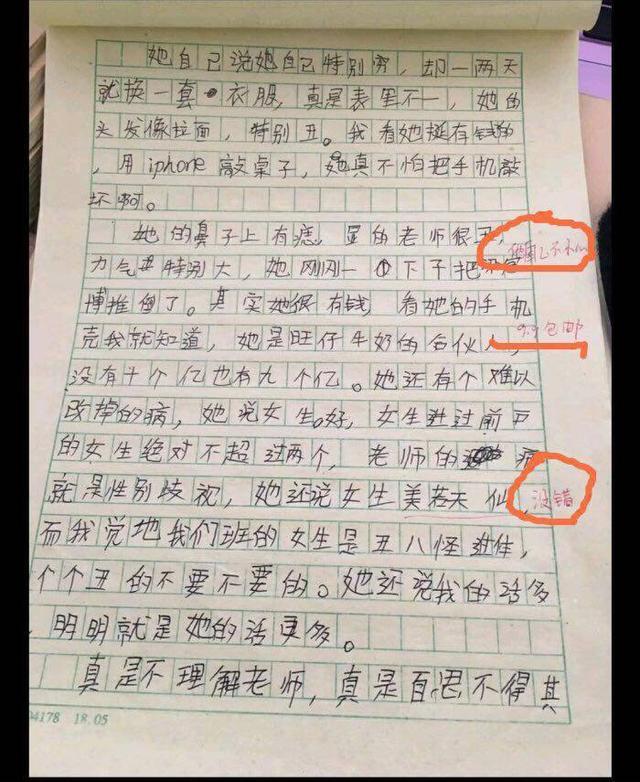 她自己说她自己特别穷,却一两天
就换一套衣服,真是表里不一,她的
头发像拉面,特别丑。我看她挺有钱的
,用iphone敲桌子,她真不怕把手机敲
坏啊。
她的鼻子上有痣,显的老师很丑,
力气特别大,她刚刚一下子把
博推倒了。其实她很有钱,看她的手机
9.9包邮
壳我就知道,她是旺仔牛奶的合伙人,
没有十个亿也有九个亿。她还有个难以
改掉的病,她说女生好,女生进过前门
的女生绝对不超过两个,老师的病
就是性别歧视,她还说女生美若天仙,
没错
而我觉地我们班的女生是丑八怪进住,
个个丑的不要不要的。她还说我的话多
,明明就是她的话更多。
真是不理解老师,真是百思不得其
04178 18.05